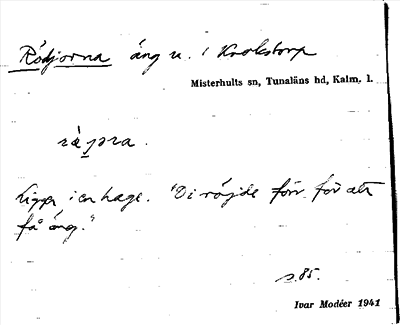 Rödjorna äng u. i Krokstorp
Misterhults sn, Tunaläns hd, Kalm. l.
Ligger i en hage. "Di röjde förr för att
få äng."
s. 85.
Ivar Modéer 1941